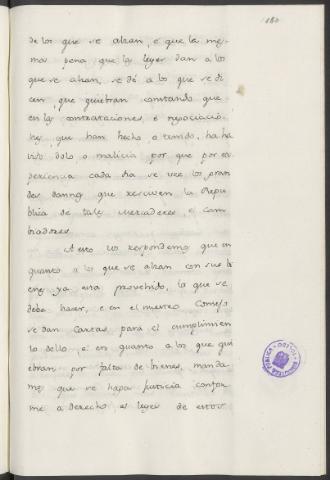 180
de los que se alzan, e que la mes-
ma pena que la leyes dan a los
que se alzan, se dé a los que se di
cen, que quiebran constando que
en las contrataciones, e negociacio-
nes que han hecho o tenido, ha ha
vido dolo, o malicia por que por es
periencia cada dia se vee los gran
des daños que resciven la Repu
blica de tales mercaderes, e Cam
biadores.
A esto vos respondemos que en
quanto a los que se alzan con sus bi
enes ya esta provehido, lo que se
debe hacer, e en el nuestro Consejo
se dan Cartas, para el cumplimien
to dello, e en quanto a los que qui
ebran por falta de bienes, manda-
mos que se haga justicia confor-
me a derecho, e leyes de estos
BIBLIOTECA PUBLICA